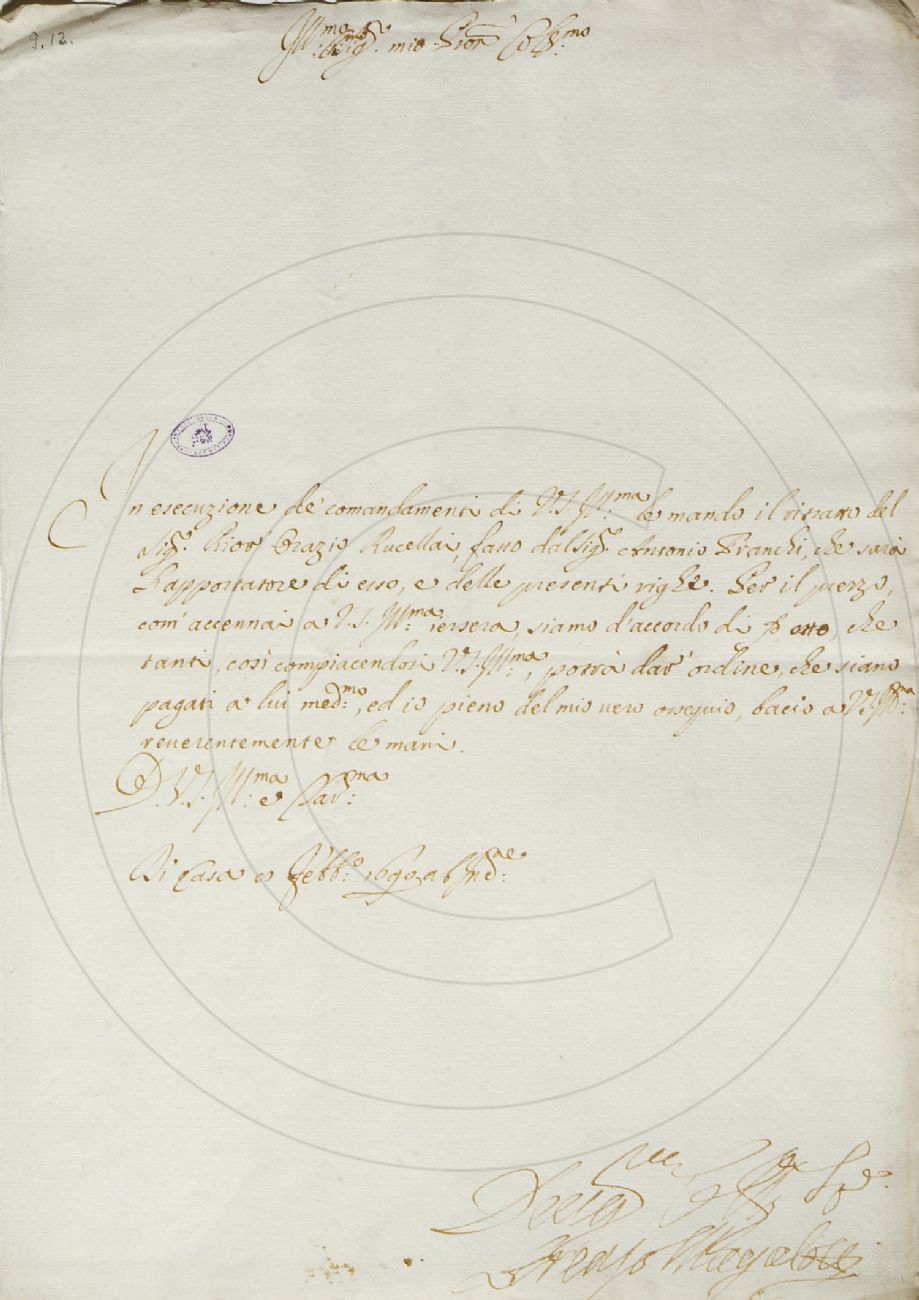 9.12.
Ill:mo Sig:r mio Sign:r Col:mo
In esecuzione de' comandamenti di V.S. Ill:ma le mando il ritratto del
Sig:r Prior Orazio Rucellai, fatto dal Sig:r Antonio Franchi, che sarà
l'apportatore di esso, e delle presenti righe. Per il prezzo,
com' accennai a V.S. Ill:ma iersera, siamo d'accordo di otto, che
tanti, così compiacendosi V.S. Ill:ma, potrà dar' ordine, che siano
pagati a lui med:mo, ed io pieno del mio vero ossequio, bacio a V.S. Ill:ma
reverentemente le mani.
D. V.S. Ill:ma e Clar:ma
Di Casa Febb:o 1690 ab Inc:ne
Lorenzo Magalotti